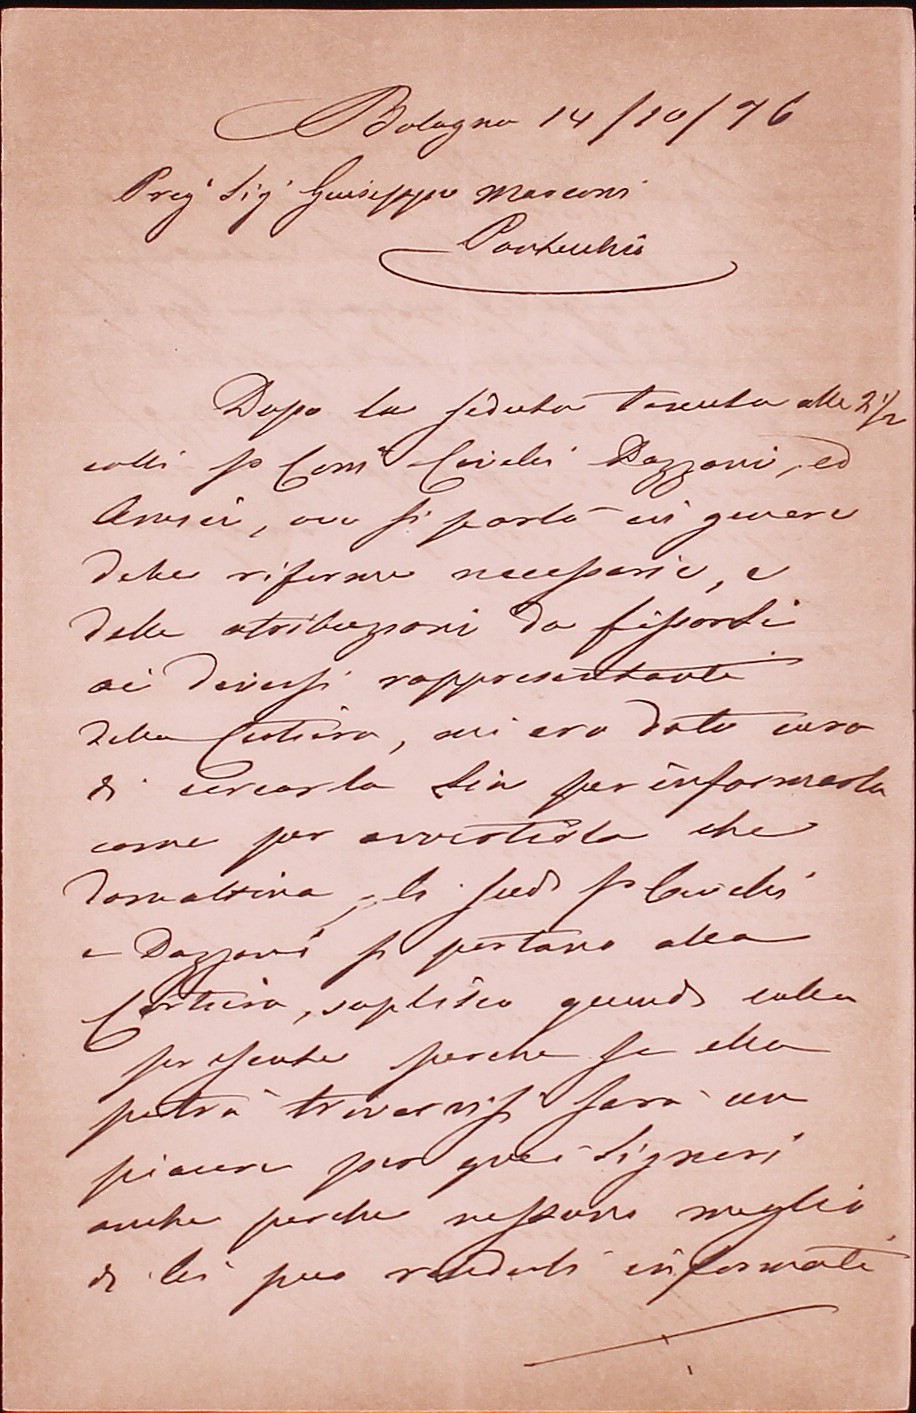 Bologna 14/10/76
Preg. Sig. Giuseppe Marconi
Pontecchio
Dopo la seduta tenuta alle 2 1/2
colli Com. Dazzani, ed
Amici, ove si parlò in genere
delle riforme necessarie, e
delle atribuzioni da fissarsi
ai diversi rappresentanti
della Cartiera, mi ero dato cura
di cercarla sia per informarla
come per avvertirla che
domattina, li
e Dazzani si portano alla
Cartiera, suplisco quindi colla
presente perche se ella
potrà trovarvisi sarà un
piacere per quei Signori
anche perche nessuno meglio
di lei puo renderli informati